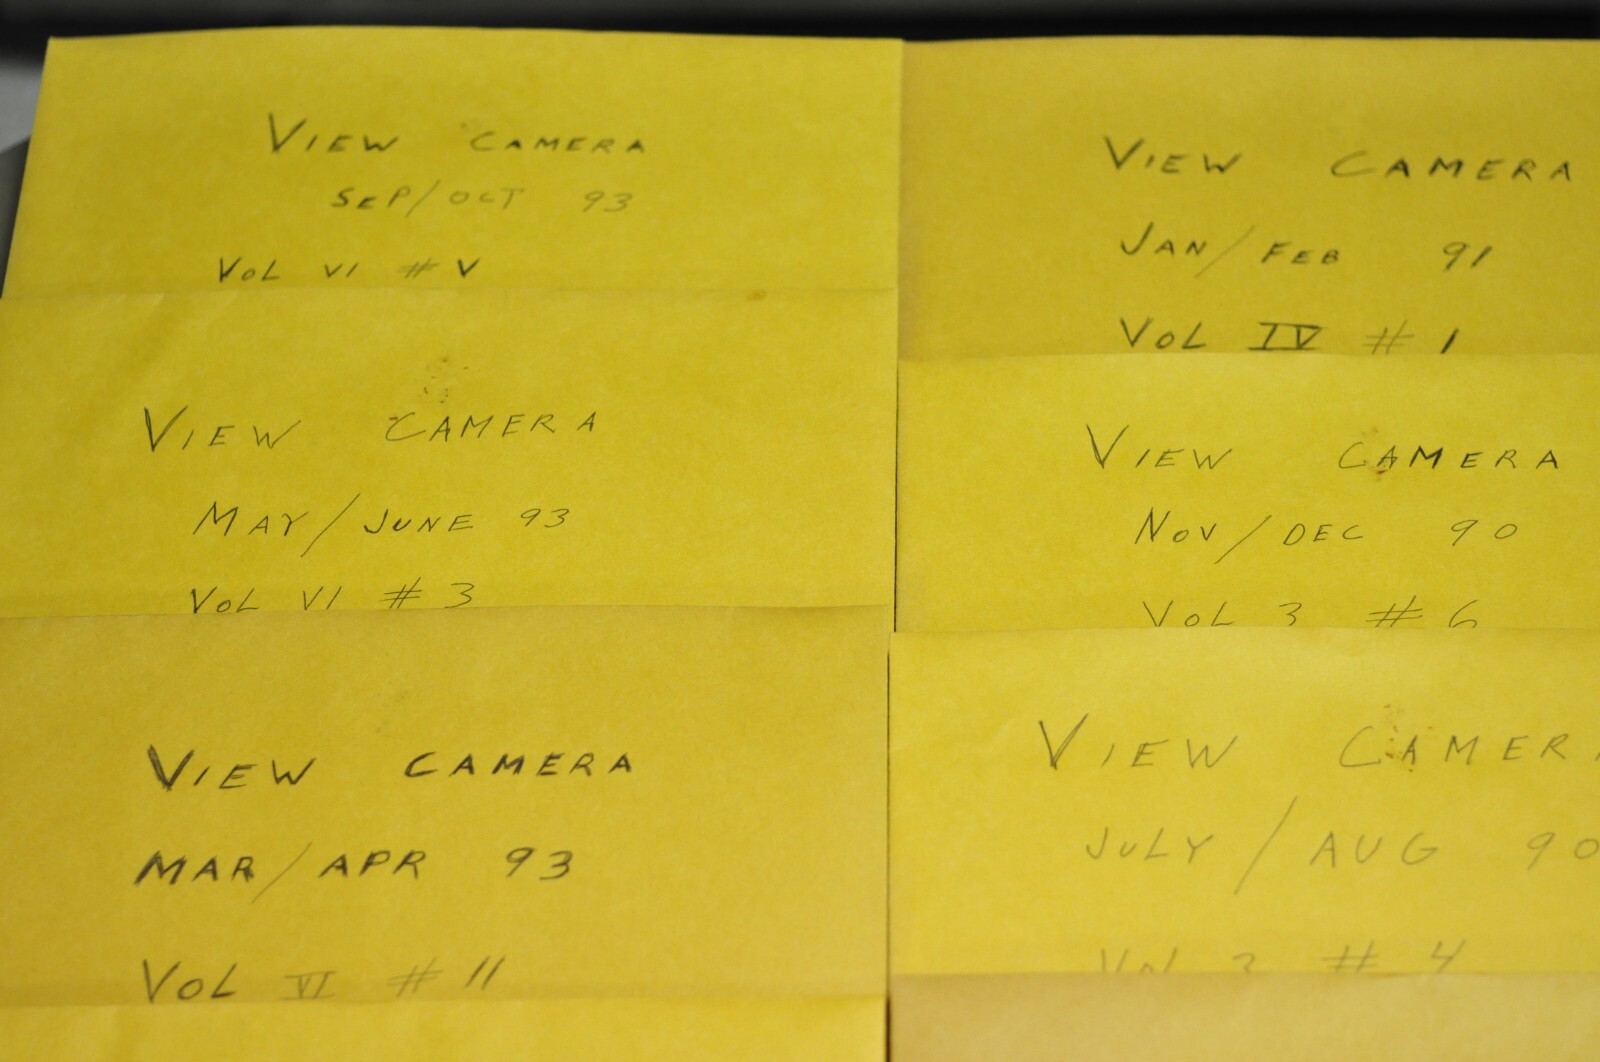 VIEW CAMERA
SEP/OCT 93
VOL VI # V
VIEW CAMERA
MAY/JUNE 93
VOL VI # 3
VIEW CAMERA
MAR/APR 93
VOL VI # II
VIEW CAMERA
JAN/FEB 91
VOL IV # 1
VIEW CAMERA
NOV/DEC 90
VOL 3 # 6
VIEW CAMERA
JULY/AUG 90
VOL 3 # 4